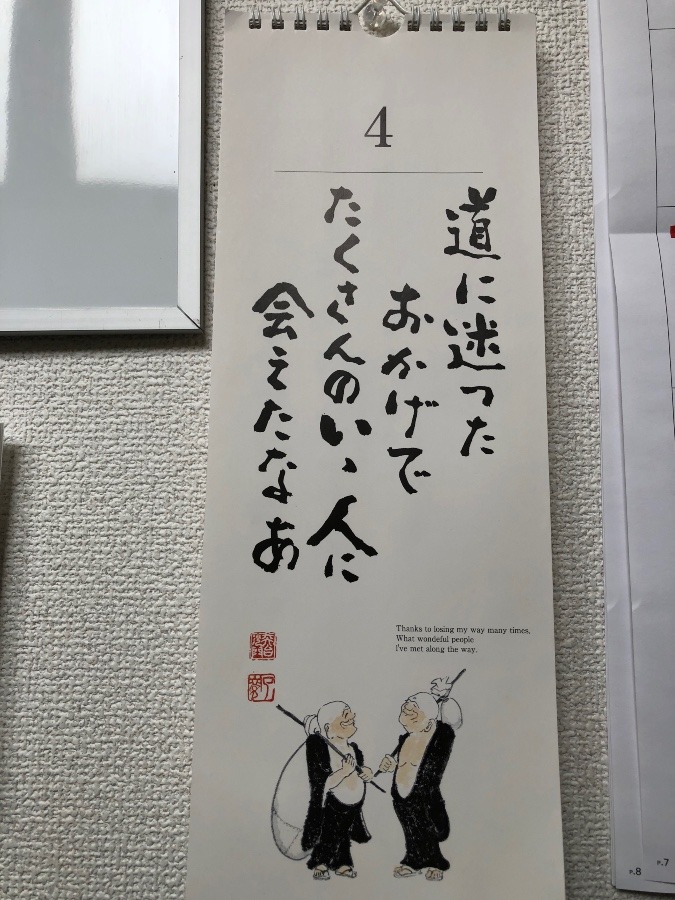 4
道に迷った
おかげで
たくさんのいい人に
会えたなあ
Thanks to losing my way many times,
What wondeful people
I've met along the way.
P.8
P.7